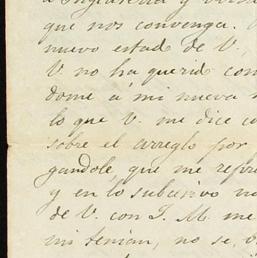 á Inglaterra y
que nos convenga.
nuevo estado de V.
V. no ha querido con
dome á mi nueva
lo que V. me dice
sobre el arreglo por
gandole, que me
y en lo subcesivo
de V. con S. M. me
mi tenian, no se